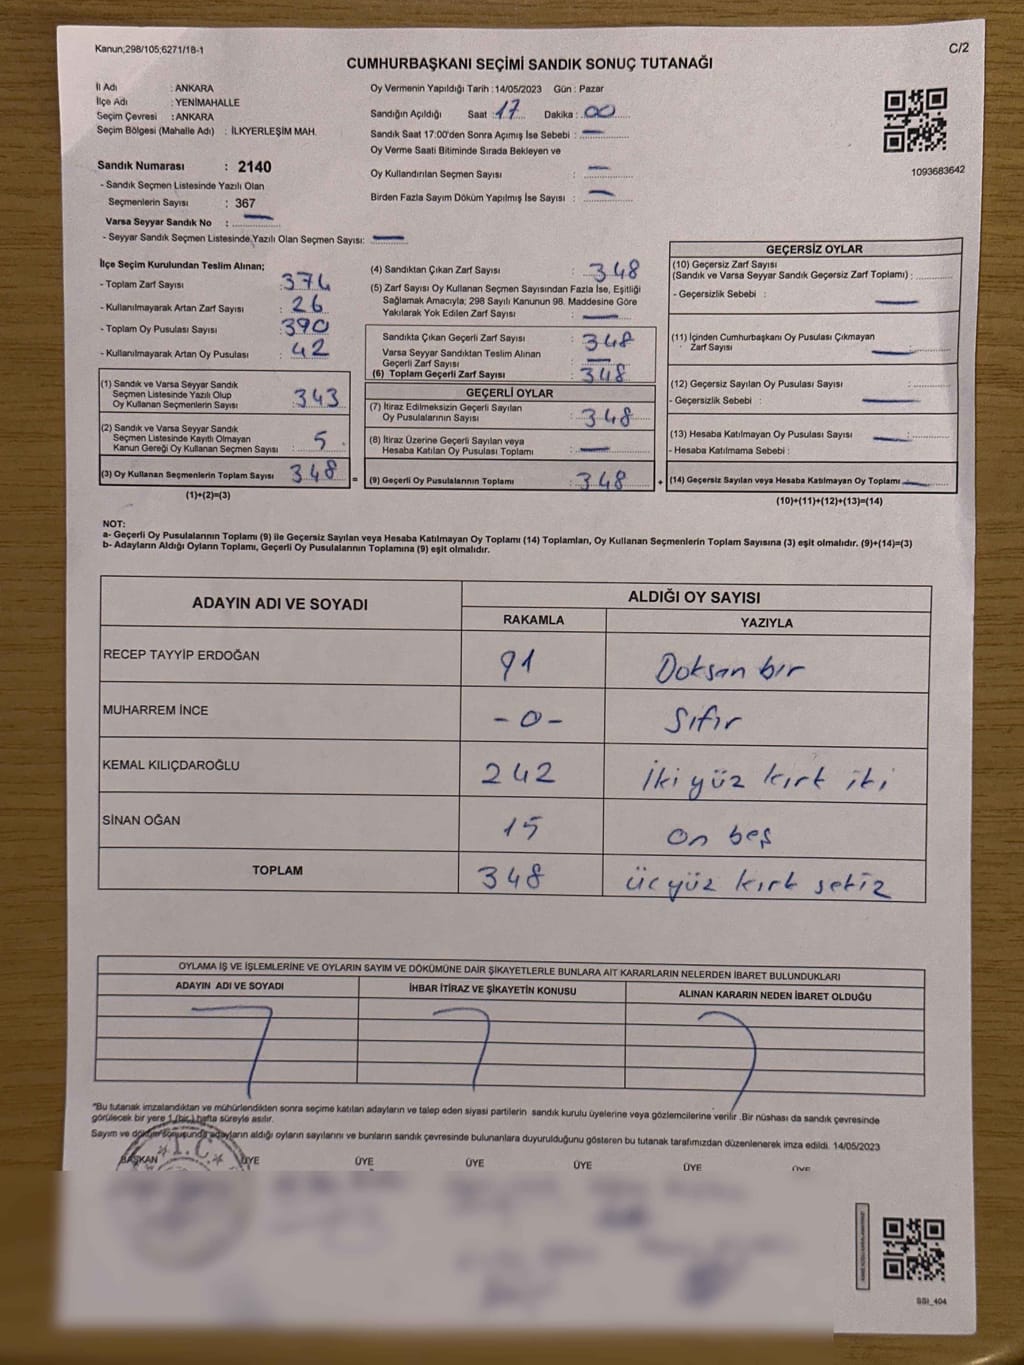 Kanun;298/105;6271/18-1
C/2
CUMHURBAŞKANI SEÇİMİ SANDIK SONUÇ TUTANAĞI
İl Adı : ANKARA
İlçe Adı : YENİMAHALLE
Seçim Çevresi : ANKARA
Seçim Bölgesi (Mahalle Adı) : İLKYERLEŞİM MAH.
Sandık Numarası : 2140
- Sandık Seçmen Listesinde Yazılı Olan
Seçmenlerin Sayısı : 367
Varsa Seyyar Sandık No : —
- Seyyar Sandık Seçmen Listesinde Yazılı Olan Seçmen Sayısı: —
Oy Vermenin Yapıldığı Tarih :14/05/2023 Gün : Pazar
Sandığın Açıldığı Saat : 17 Dakika : 00
Sandık Saat 17:00'den Sonra Açımış İse Sebebi : —
Oy Verme Saati Bitiminde Sırada Bekleyen ve
Oy Kullandırılan Seçmen Sayısı : —
Birden Fazla Sayım Döküm Yapılmış İse Sayısı : —
1093683642
İlçe Seçim Kurulundan Teslim Alınan;
- Toplam Zarf Sayısı : 374
- Kullanılmayarak Artan Zarf Sayısı : 26
- Toplam Oy Pusulası Sayısı : 390
- Kullanılmayarak Artan Oy Pusulası : 42
(1) Sandık ve Varsa Seyyar Sandık
Seçmen Listesinde Yazılı Olup
Oy Kullanan Seçmenlerin Sayısı : 343
(2) Sandık ve Varsa Seyyar Sandık
Seçmen Listesinde Kayıtlı Olmayan
Kanun Gereği Oy Kullanan Seçmen Sayısı : 5
(3) Oy Kullanan Seçmenlerin Toplam Sayısı : 348 =
(1)+(2)=(3)
(4) Sandıktan Çıkan Zarf Sayısı : 348
(5) Zarf Sayısı Oy Kullanan Seçmen Sayısından Fazla İse, Eşitliği
Sağlamak Amacıyla; 298 Sayılı Kanunun 98. Maddesine Göre
Yakılarak Yok Edilen Zarf Sayısı : —
Sandıkta Çıkan Geçerli Zarf Sayısı : 348
Varsa Seyyar Sandıktan Teslim Alınan
Geçerli Zarf Sayısı : —
(6) Toplam Geçerli Zarf Sayısı : 348
GEÇERLİ OYLAR
(7) İtiraz Edilmeksizin Geçerli Sayılan
Oy Pusulalarının Sayısı : 348
(8) İtiraz Üzerine Geçerli Sayılan veya
Hesaba Katılan Oy Pusulası Toplamı : —
(9) Geçerli Oy Pusulalarının Toplamı : 348 +
GEÇERSİZ OYLAR
(10) Geçersiz Zarf Sayısı
(Sandık ve Varsa Seyyar Sandık Geçersiz Zarf Toplamı) :
- Geçersizlik Sebebi : —
(11) İçinden Cumhurbaşkanı Oy Pusulası Çıkmayan
Zarf Sayısı : —
(12) Geçersiz Sayılan Oy Pusulası Sayısı :
- Geçersizlik Sebebi : —
(13) Hesaba Katılmayan Oy Pusulası Sayısı : —
- Hesaba Katılmama Sebebi :
(14) Geçersiz Sayılan veya Hesaba Katılmayan Oy Toplamı : —
(10)+(11)+(12)+(13)=(14)
NOT:
a- Geçerli Oy Pusulalarının Toplamı (9) ile Geçersiz Sayılan veya Hesaba Katılmayan Oy Toplamı (14) Toplamları, Oy Kullanan Seçmenlerin Toplam Sayısına (3) eşit olmalıdır. (9)+(14)=(3)
b- Adayların Aldığı Oyların Toplamı, Geçerli Oy Pusulalarının Toplamına (9) eşit olmalıdır.
ADAYIN ADI VE SOYADI ALDIĞI OY SAYISI
RAKAMLA YAZIYLA
RECEP TAYYİP ERDOĞAN 91 Doksan bir
MUHARREM İNCE -0- Sıfır
KEMAL KILIÇDAROĞLU 242 İki yüz kırk iki
SİNAN OĞAN 15 on beş
TOPLAM 348 üç yüz kırk sekiz
OYLAMA İŞ VE İŞLEMLERİNE VE OYLARIN SAYIM VE DÖKÜMÜNE DAİR ŞİKAYETLERLE BUNLARA AİT KARARLARIN NELERDEN İBARET BULUNDUKLARI
ADAYIN ADI VE SOYADI İHBAR İTİRAZ VE ŞİKAYETİN KONUSU ALINAN KARARIN NEDEN İBARET OLDUĞU
"Bu tutanak imzalandıktan ve mühürlendikten sonra seçime katılan adayların ve talep eden siyasi partilerin sandık kurulu üyelerine veya gözlemcilerine verilir .Bir nüshası da sandık çevresinde
görülecek bir yere 1 (bir) hafta süreyle asılır.
Sayım ve döküm sonuşunda adayların aldığı oyların sayılarını ve bunların sandık çevresinde bulunanlara duyurulduğunu gösteren bu tutanak tarafımızdan düzenlenerek imza edildi. 14/05/2023
BAŞKAN ÜYE ÜYE ÜYE ÜYE ÜYE ÜYE
T.C.
SSI_404